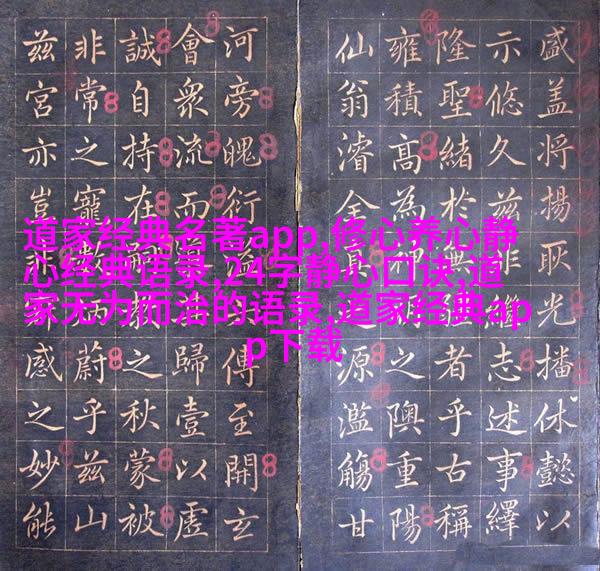 道家经典名著app,修心养心静
心经典语录,24字静心口诀,道
家无为而治的语录,道家经典ap
p下载
盛盖将揚耿光播休懿以
示悠久兹非志述事繹
隆聖緒於者乎古稱
雍積高為之隩重陽
仙翁濬全真道源濫觴甘
河旁魄衍傳至開玄
會衆流而歸壹以虛
誠自持在之秋蒙被
非常之寵蔚乎兹山
兹宮亦豈感之妙能